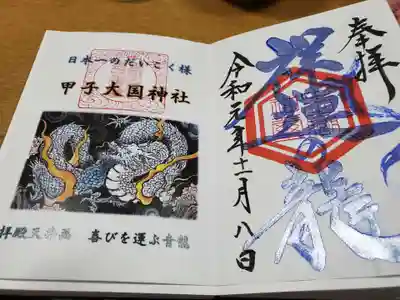 日本一のだいこく様
甲子大国神社
拝殿天井画　喜びを運ぶ音龍
奉拝
祥運の龍
令和元年十一月八日